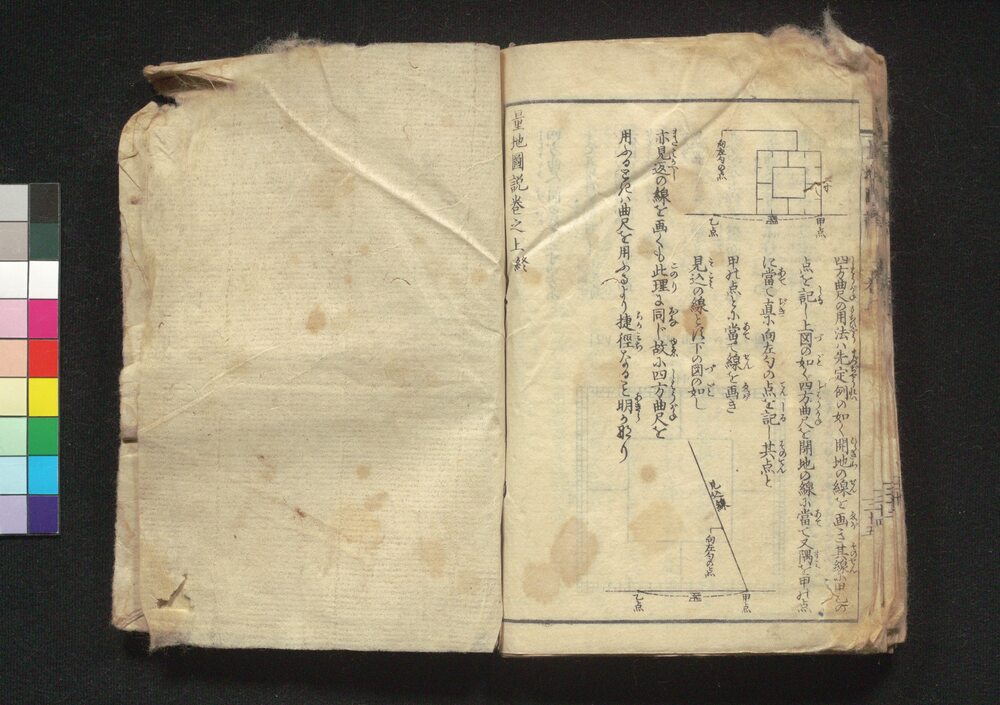 四方曲尺の用法ハ先定例の如く開地の線を画き其線に甲乙の
点を記し上図の如く四方曲尺を開地の線に當て又隅を甲の点
に當て直に向左勾の点を記し其点と
甲の点とに當て線を画き
見込の線とす下の図の如し
亦見返の線を画くも此理に同じ故に四方曲尺を
用ふるときハ曲尺を用ふるより捷徑なること明らかなり
量地圖説巻之上終
向左勾の点
甲点
乙点
見込線
向左勾の点
甲点
乙点